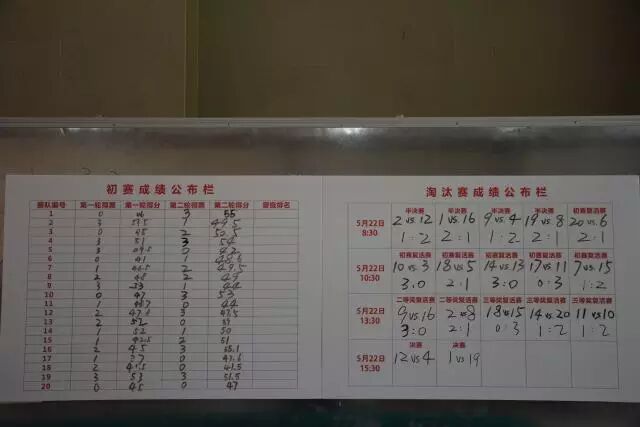 初赛成绩公布栏
赛队编号 第一轮得票 第一轮得分 第二轮得票 第二轮得分 晋级排名
1 0 3 55
2 3 1
3 0 2 50.5
4 3 51 3 54
5 3 0 42
6 0 41 1
7 1 2 49.5
8 2 48 2 49
9 3 1 44
10 0 47 3 53
11 1 0 44
12 2 47.6 3 47.5
13 2 52 0
14 1 52 1 50
15 1 42.5 2 51
16 2 45 3
17 1 37 0
18 2 0
19 3 53 3 51.5
20 0 45 0 47
淘汰赛成绩公布栏
5月22日 8:30
半决赛 半决赛 半决赛 半决赛 初赛复活赛
2 vs 12 1 vs 16 9 vs 4 19 vs 8 20 vs 6
1:2 2:1 1:2 2:1 2:1
5月22日 10:30
初赛复活赛 初赛复活赛 初赛复活赛 初赛复活赛 初赛复活赛
10 vs 3 18 vs 5 14 vs 13 17 vs 11 7 vs 15
3:0 2:1 3:0 0:3 1:2
5月22日 13:30
二等奖复活赛 二等奖复活赛 三等奖复活赛 三等奖复活赛 三等奖复活赛
9 vs 16 2 vs 8 18 vs 15 14 vs 20 11 vs 10
3:0 2:1 0:3 1:2 1:2
5月22日 15:30
决赛 决赛
12 vs 4 1 vs 19